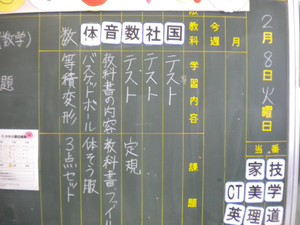 2月8日火曜日
当番
家 技
CT 美 学
英 理 道
今週
月
教科
学習内容
課題
国
テスト
社
テスト
数
テスト
定規
音
教科書の内容
教科書、ファイル
体
バスケットボール
体そう服
数
等積変形
3点セット
数学)
題